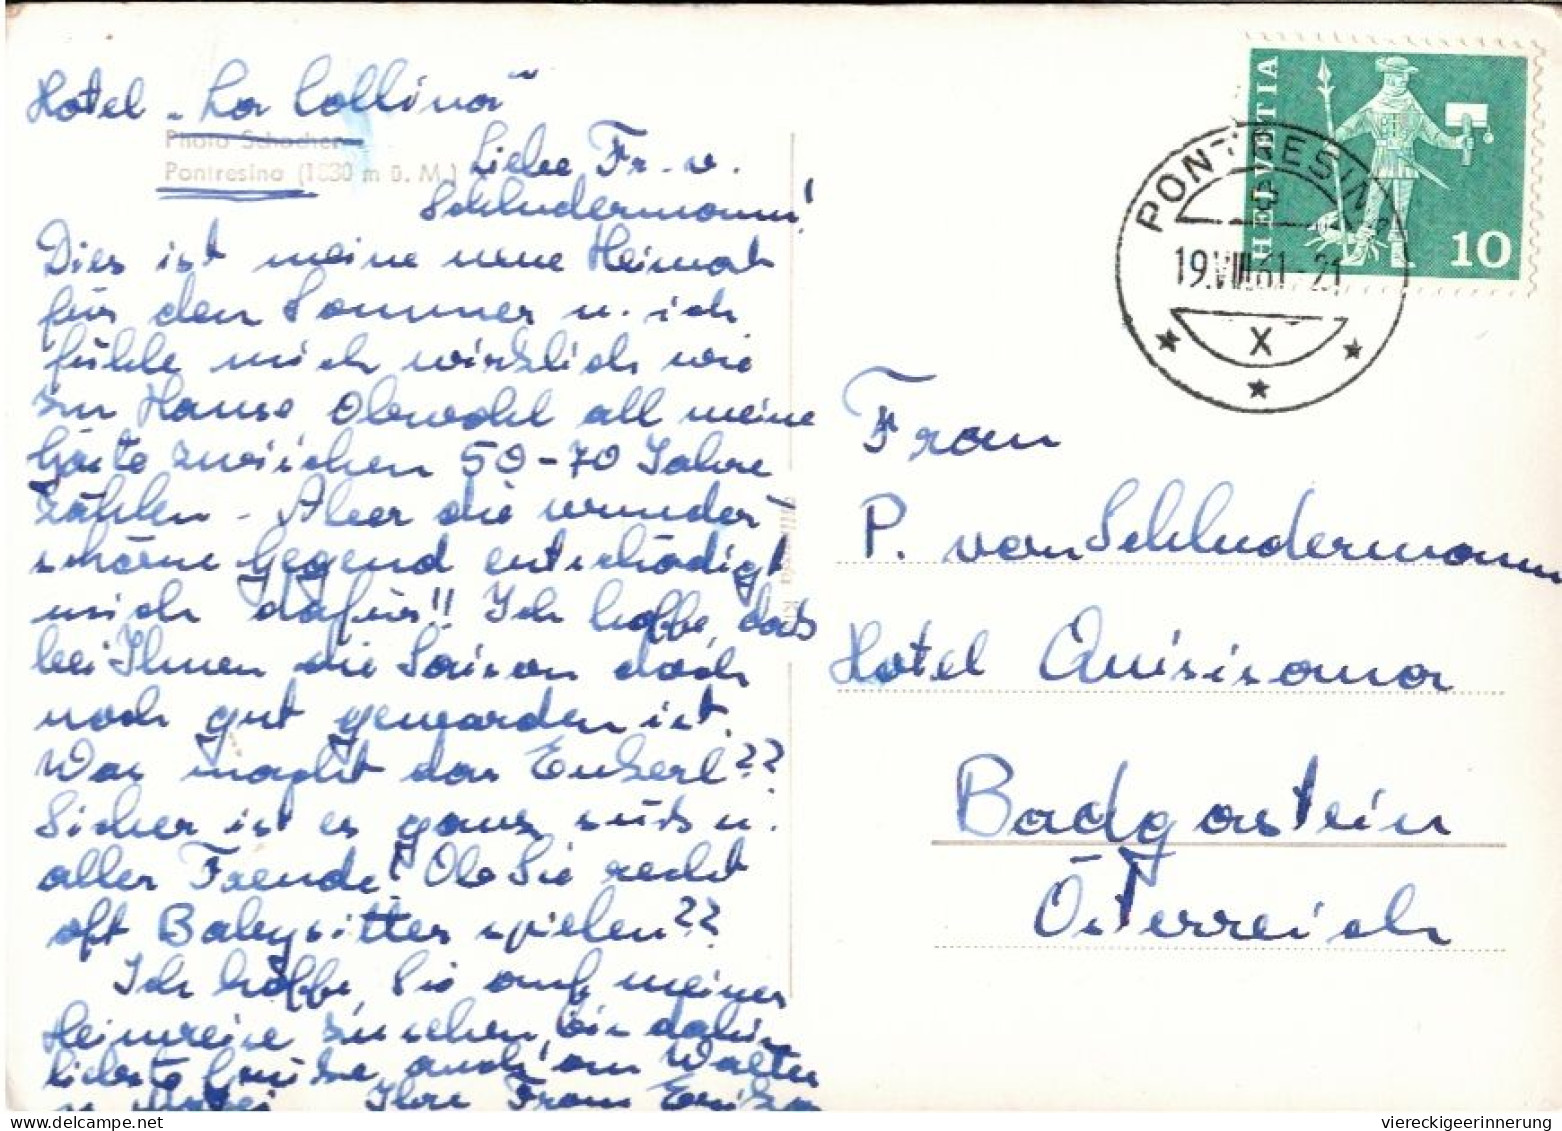 Hotel „La Collina"
Photo Schocher
Pontresina (1830 m ü. M.)
Liebe Fr. v.
Schludermann!
Dies ist meine neue Heimat
für den Sommer u. ich
fühle mich wirklich wie
zu Hause, Obwohl all meine
Gäste zwischen 50-70 Jahre
zählen - Aber die wunder
schöne Gegend entschädigt
mich dafür!! Ich hoffe, dass
bei Ihnen die Saison doch
noch gut geworden ist.
Was macht das Enkerl??
Sicher ist es ganz süss u.
aller Freude! Ob Sie recht
oft Babysitter spielen??
Ich hoffe, Sie auf meiner
Heimreise zu sehen, bis dahin
liebste Grüsse, auch an Walter
Ihre Frau
HELVETIA
10
PONTRESINA
19.VIII.61-21
X
Frau
P. von Schludermann
Hotel Quisisana
Badgastein
Österreich
viereckigeerinnerung